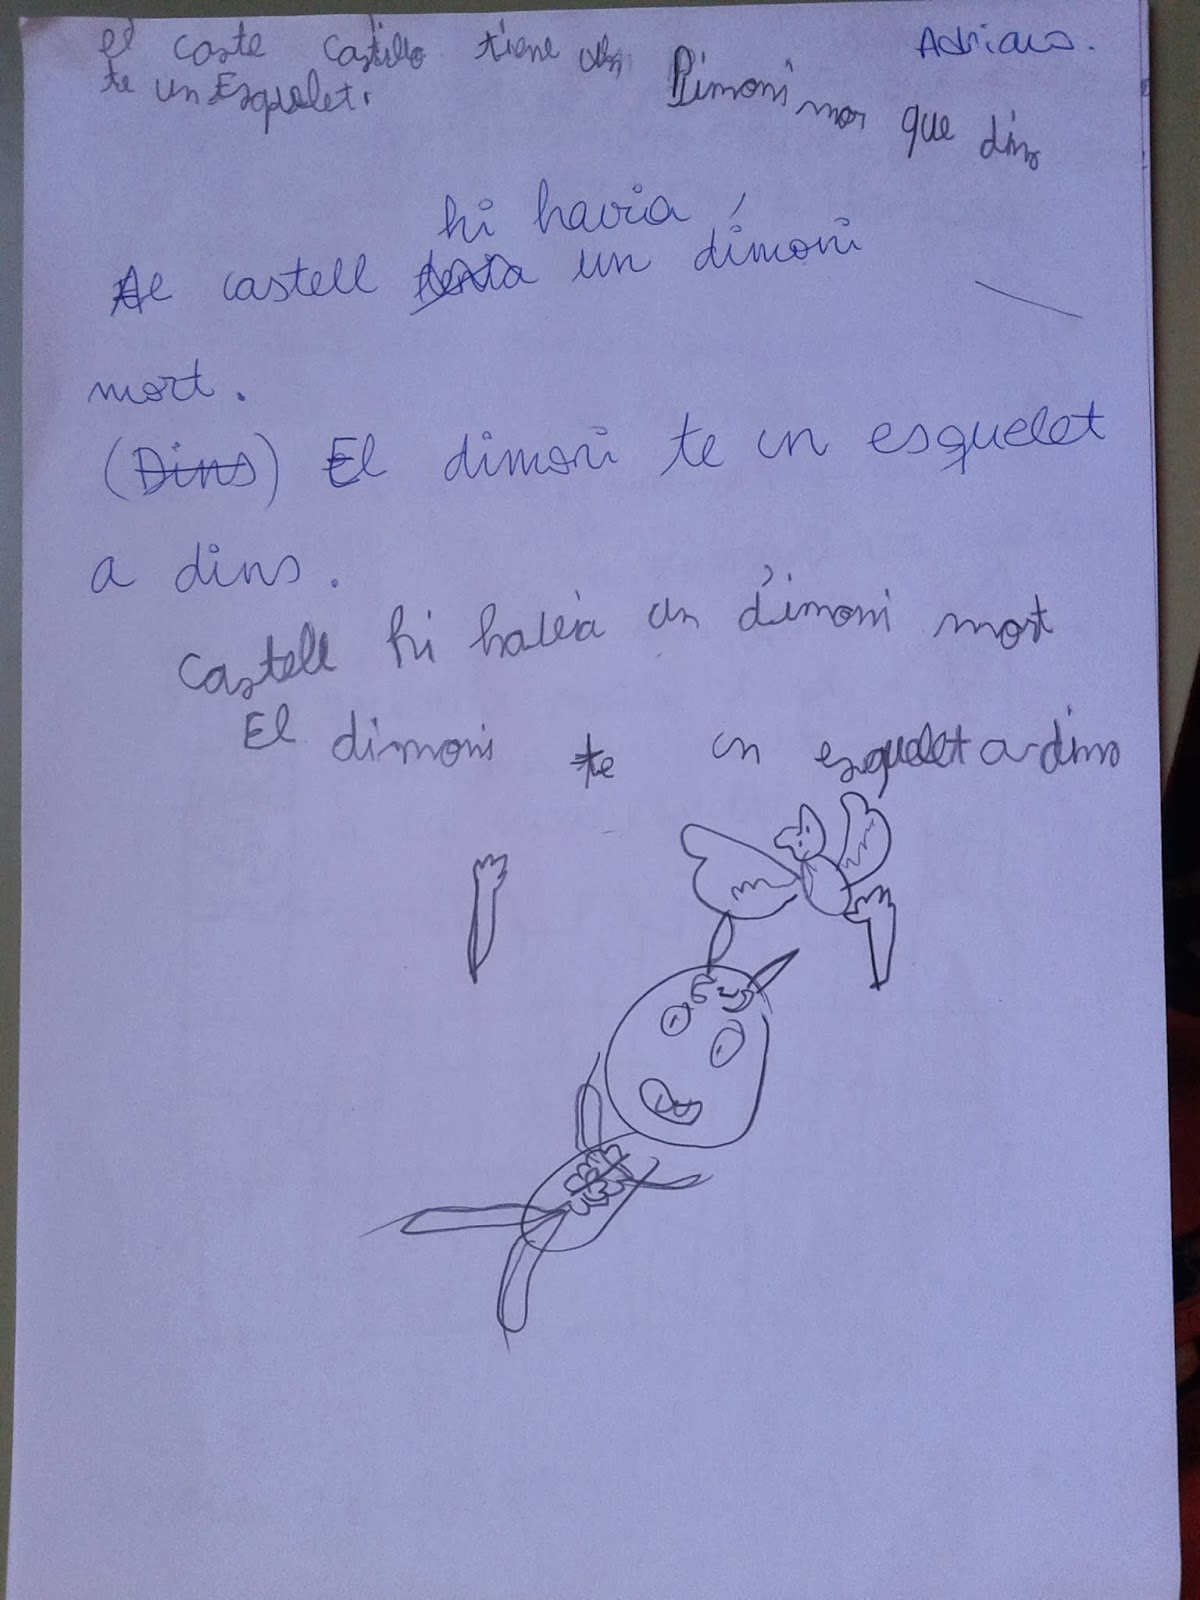 el caste castillo tiene un Dimoni mor que dins
Adrians.
te un Esquelet.
hi havia
Al castell tenia un dimoni
mort.
(Dins) El dimoni te un esquelet
a dins.
Castell hi havia un dimoni mort
El dimoni te un esquelet a dins